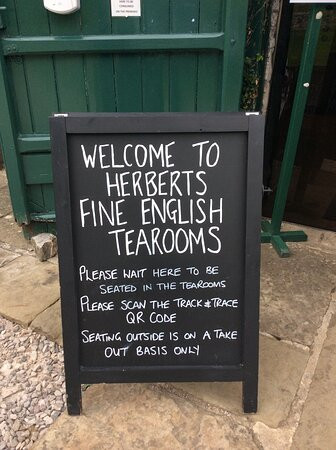 WELCOME TO
HERBERTS
FINE ENGLISH
TEAROOMS
PLEASE WAIT HERE TO BE
SEATED IN THE TEAROOMS
PLEASE SCAN THE TRACK & TRACE
QR CODE
SEATING OUTSIDE IS ON A TAKE
OUT BASIS ONLY